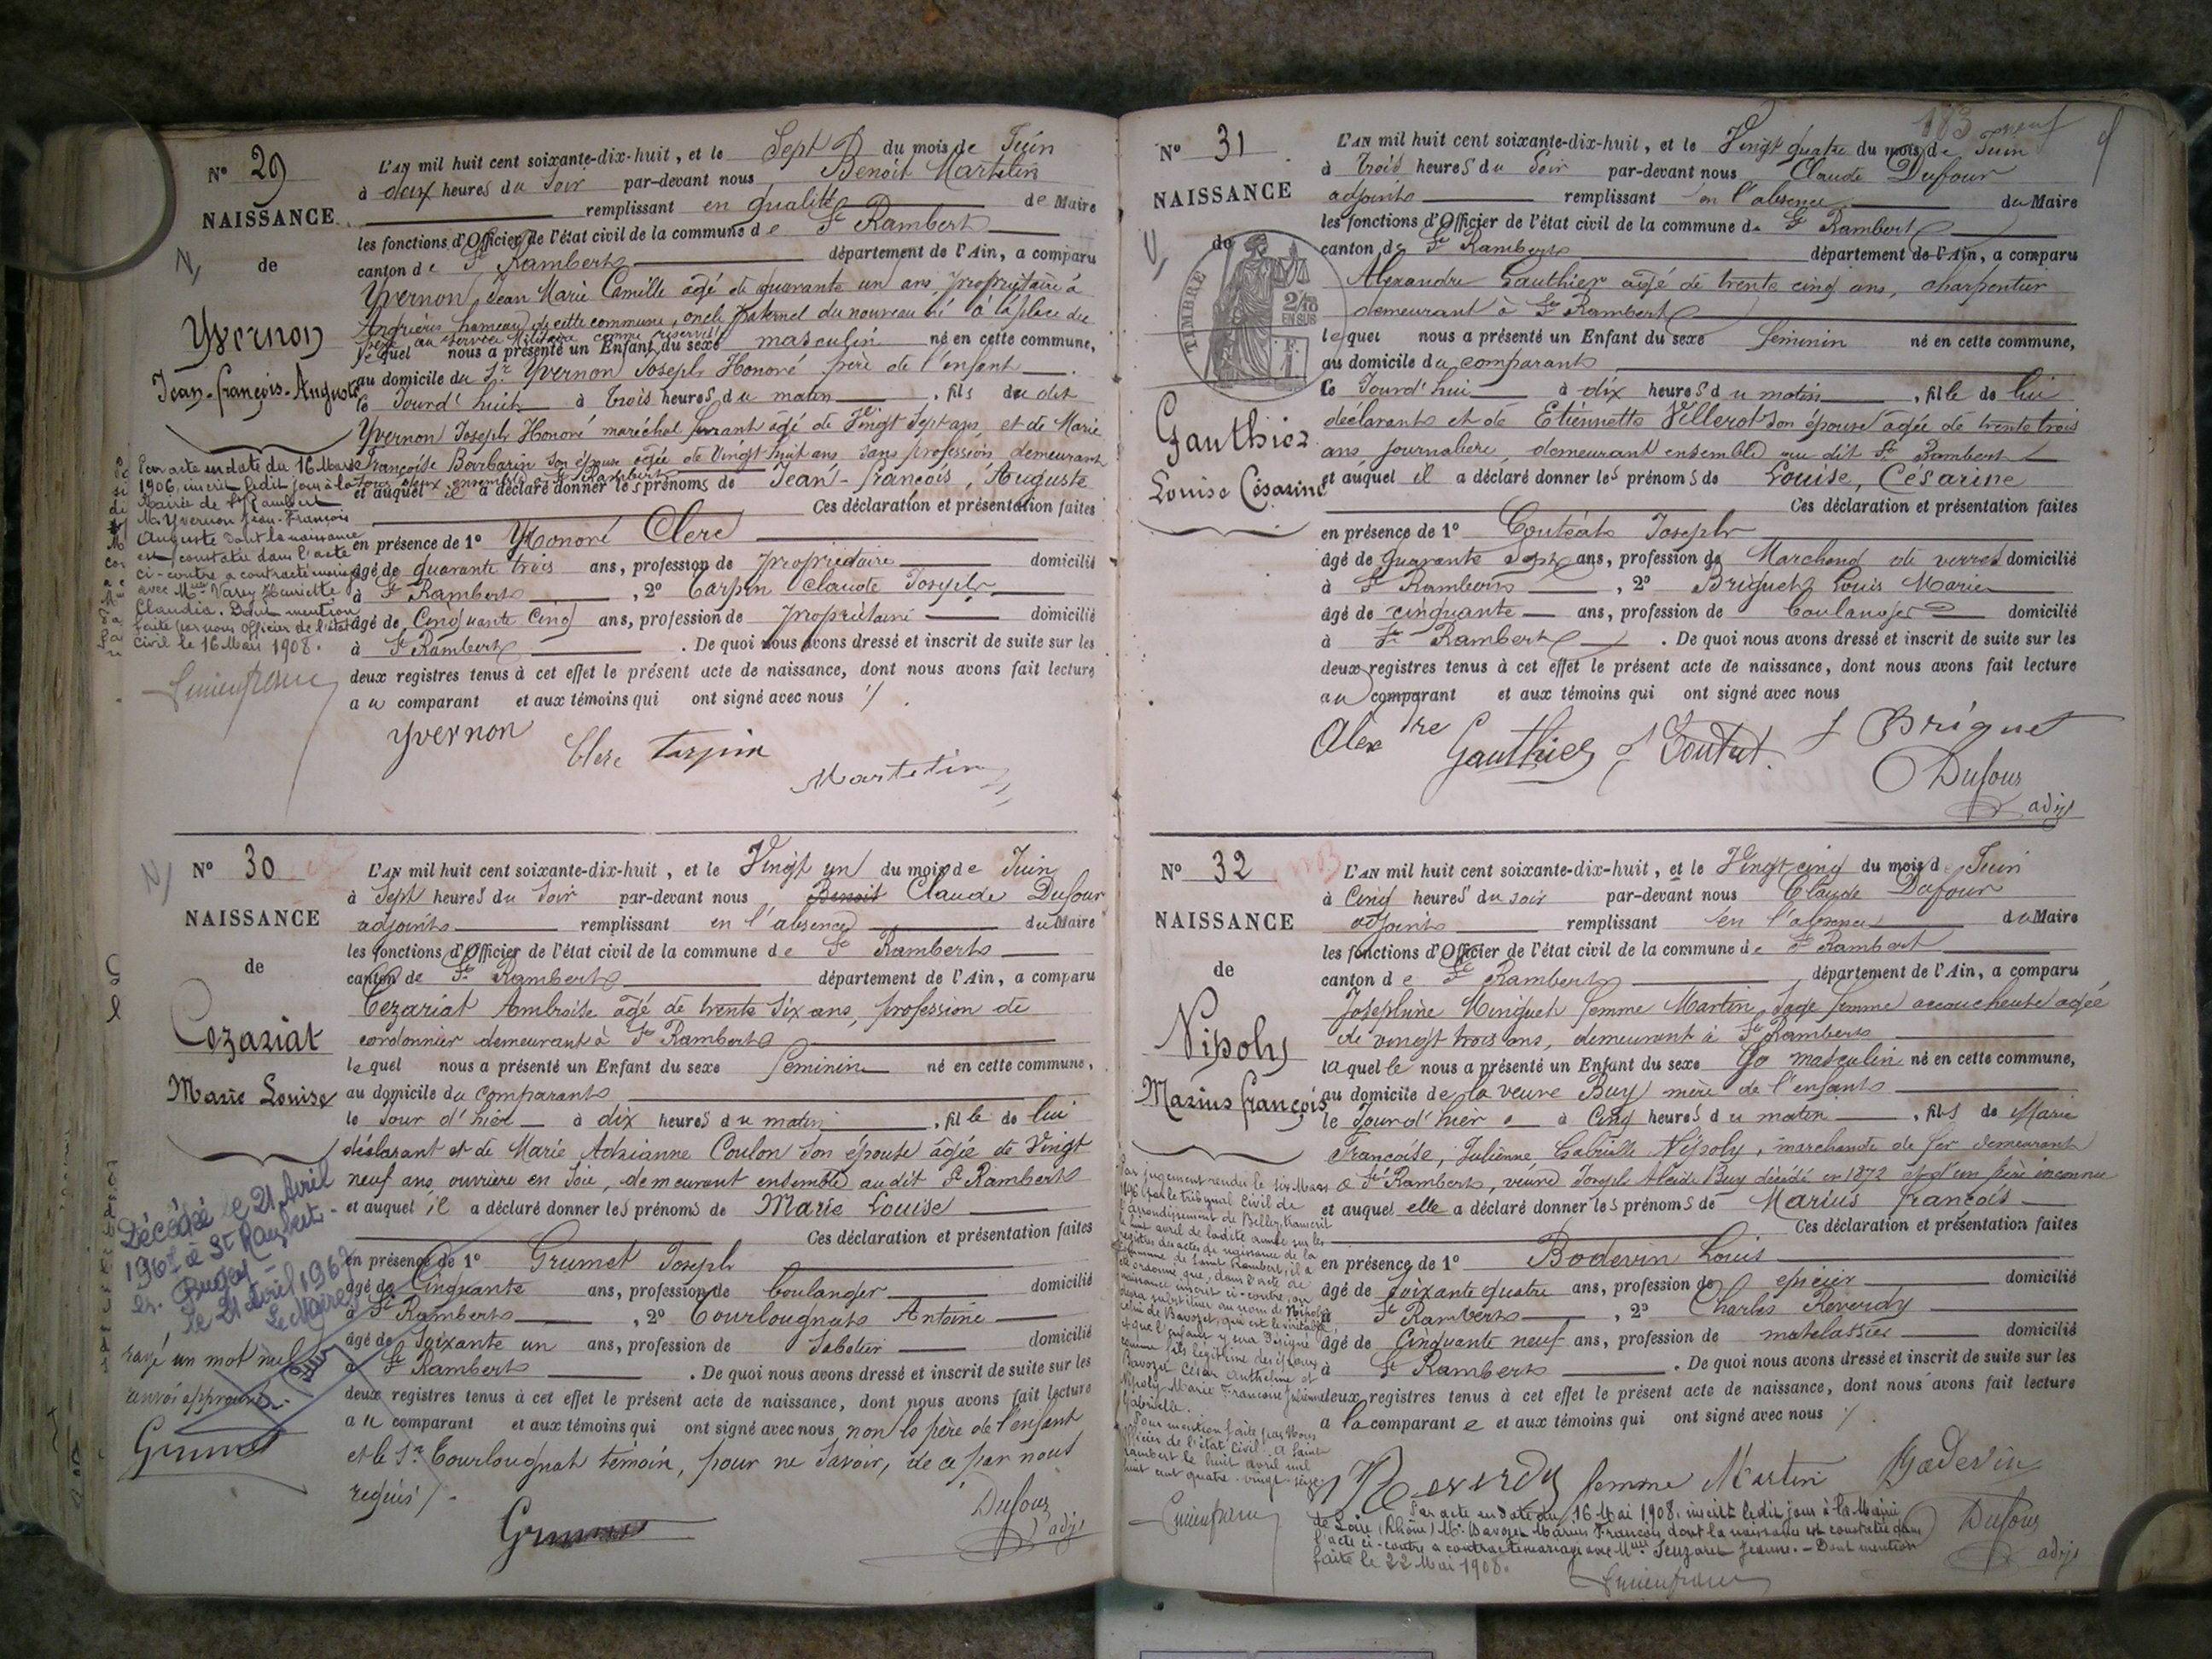 N° 29
NAISSANCE
de
Yvernon
Jean-François-Auguste
L'AN mil huit cent soixante-dix-huit, et le Sept du mois de Juin
à deux heures du Soir par-devant nous Benoit Martelin
remplissant en qualité de Maire
les fonctions d'Officier de l'état civil de la commune de St Rambert
canton de St Rambert département de l'Ain, a comparu
Yvernon Jean Marie Camille agé de quarante un ans, propriétaire à
Angrières hameau de cette commune, oncle paternel du nouveau né à la place du
père au service Militaire comme réserviste
lequel nous a présenté un Enfant du sexe masculin né en cette commune,
au domicile du Sr Yvernon Joseph Honoré père de l'enfant
le Jourd'huit à trois heures du matin, fils du dit
Yvernon Joseph Honoré maréchal ferrant agé de Vingt Sept ans, et de Marie
Françoise Barbarin son épouse agée de Vingt huit ans sans profession demeurant
tous deux ensemble à St Rambert
et auquel il a déclaré donner les prénoms de Jean-François, Auguste
Ces déclaration et présentation faites
en présence de 1° Honoré Clerc
âgé de quarante trois ans, profession de propriétaire domicilié
à St Rambert, 2° Tarpin Claude Joseph
âgé de Cinquante Cinq ans, profession de propriétaire domicilié
à St Rambert. De quoi nous avons dressé et inscrit de suite sur les
deux registres tenus à cet effet le présent acte de naissance, dont nous avons fait lecture
au comparant et aux témoins qui ont signé avec nous
Yvernon Clerc Tarpin Martelin
Par acte en date du 16 Mars
1906, inscrit ledit jour à la
Mairie de St Rambert
M. Yvernon Jean-François
Auguste dont la naissance
est constatée dans l'acte
ci-contre a contracté mariage
avec Mlle Varey Henriette
Claudia. Dont mention
faite par nous Officier de l'état
civil le 16 Mars 1908.
N° 30
NAISSANCE
de
Cezariat
Marie Louise
L'AN mil huit cent soixante-dix-huit, et le Vingt un du mois de Juin
à Sept heures du Soir par-devant nous Benoit Claude Dufour
adjoint remplissant en l'absence du Maire
les fonctions d'Officier de l'état civil de la commune de St Rambert
canton de St Rambert département de l'Ain, a comparu
Cezariat Ambroise agé de trente six ans, profession de
cordonnier demeurant à St Rambert
lequel nous a présenté un Enfant du sexe Féminin né en cette commune,
au domicile du Comparant
le Jour d'hier à dix heures du matin, fille de lui
déclarant et de Marie Adrianne Coulon son épouse agée de Vingt
neuf ans ouvrière en Soie, demeurant ensemble audit St Rambert
et auquel il a déclaré donner les prénoms de Marie Louise
Ces déclaration et présentation faites
en présence de 1° Grumet Joseph
âgé de Cinquante ans, profession de boulanger domicilié
à St Rambert, 2° Courlougnat Antoine
âgé de Soixante un ans, profession de Sabotier domicilié
à St Rambert. De quoi nous avons dressé et inscrit de suite sur les
deux registres tenus à cet effet le présent acte de naissance, dont nous avons fait lecture
au comparant et aux témoins qui ont signé avec nous non le père de l'enfant
et le Sr Courlougnat témoin, pour ne savoir, de ce par nous
requis
Grumet Dufour adjt
Décédée le 21 Avril
à St Rambert
en Bugey
le 21 Avril
Le Maire
rayé un mot nul
renvoi approuvé.
Grumet
N° 31
NAISSANCE
de
TIMBRE
2/10 EN SUS
Gauthier
Louise Césarine
183 neuf
L'AN mil huit cent soixante-dix-huit, et le Vingt quatre du mois de Juin
à trois heures du Soir par-devant nous Claude Dufour
adjoint remplissant en l'absence du Maire
les fonctions d'Officier de l'état civil de la commune de St Rambert
canton de St Rambert département de l'Ain, a comparu
Alexandre Gauthier agé de trente cinq ans, charpentier
demeurant à St Rambert
lequel nous a présenté un Enfant du sexe féminin né en cette commune,
au domicile du comparant
le Jourd'hui à dix heures du matin, fille de lui
déclarant et de Etiennette Villerot son épouse agée de trente trois
ans journalière, demeurant ensemble au dit St Rambert
et auquel il a déclaré donner les prénoms de Louise, Césarine
Ces déclaration et présentation faites
en présence de 1° Coutéat Joseph
âgé de quarante sept ans, profession de Marchand de verres domicilié
à St Rambert, 2° Briguet Louis Marie
âgé de cinquante ans, profession de boulanger domicilié
à St Rambert. De quoi nous avons dressé et inscrit de suite sur les
deux registres tenus à cet effet le présent acte de naissance, dont nous avons fait lecture
au comparant et aux témoins qui ont signé avec nous
Alexdre Gauthier Briguet
Dufour
adjt
N° 32
NAISSANCE
de
Nipoly
Marius François
L'AN mil huit cent soixante-dix-huit, et le Vingt cinq du mois de Juin
à Cinq heures du soir par-devant nous Claude Dufour
adjoint remplissant en l'absence du Maire
les fonctions d'Officier de l'état civil de la commune de St Rambert
canton de St Rambert département de l'Ain, a comparu
Joséphine Minguet femme Martin, Sage femme accoucheuse agée
de vingt trois ans, demeurant à St Rambert
laquelle nous a présenté un Enfant du sexe masculin né en cette commune,
au domicile de la veuve Buy mère de l'enfant
le Jour d'hier à Cinq heures du matin, fils de Marie
Françoise, Julienne, Gabrielle Népoly, marchande de fer demeurant
à St Rambert, veuve Joseph Alcide Buy décédé en 1872 et d'un père inconnu
et auquel elle a déclaré donner les prénoms de Marius François
Ces déclaration et présentation faites
en présence de 1° Bodevin Louis
âgé de Soixante quatre ans, profession de épicier domicilié
à St Rambert, 2° Charles Reverdy
âgé de Cinquante neuf ans, profession de matelassier domicilié
à St Rambert. De quoi nous avons dressé et inscrit de suite sur les
deux registres tenus à cet effet le présent acte de naissance, dont nous avons fait lecture
a la comparante et aux témoins qui ont signé avec nous
Reverdy femme Martin Bodevin
Dufour
adjt
Par jugement rendu le six Mars
1896 par le tribunal Civil de
l'arrondissement de Belley, transcrit
le huit avril de ladite année sur les
registres des actes de naissance de la
Commune de Saint Rambert, il a
été ordonné que, dans l'acte de
naissance inscrit ci-contre, on
devra substituer au nom de Nipoly
celui de Bavozet, qui est le véritable
et que l'enfant y sera désigné
comme fils légitime des époux
Bavozet César Anthelme et
Nipoly Marie Françoise Julienne
Gabrielle.
Pour mention faite par Nous
Officier de l'état civil. A Saint
Rambert le huit avril mil
huit cent quatre-vingt-seize.
Par acte en date du 16 Mai 1908, inscrit ledit jour à la Mairie
de Loire (Rhône) Mr. Bavozet Marius François dont la naissance est constatée dans
l'acte ci-contre a contracté mariage avec Mlle Jeanne. - Dont mention
faite le 22 Mai 1908.